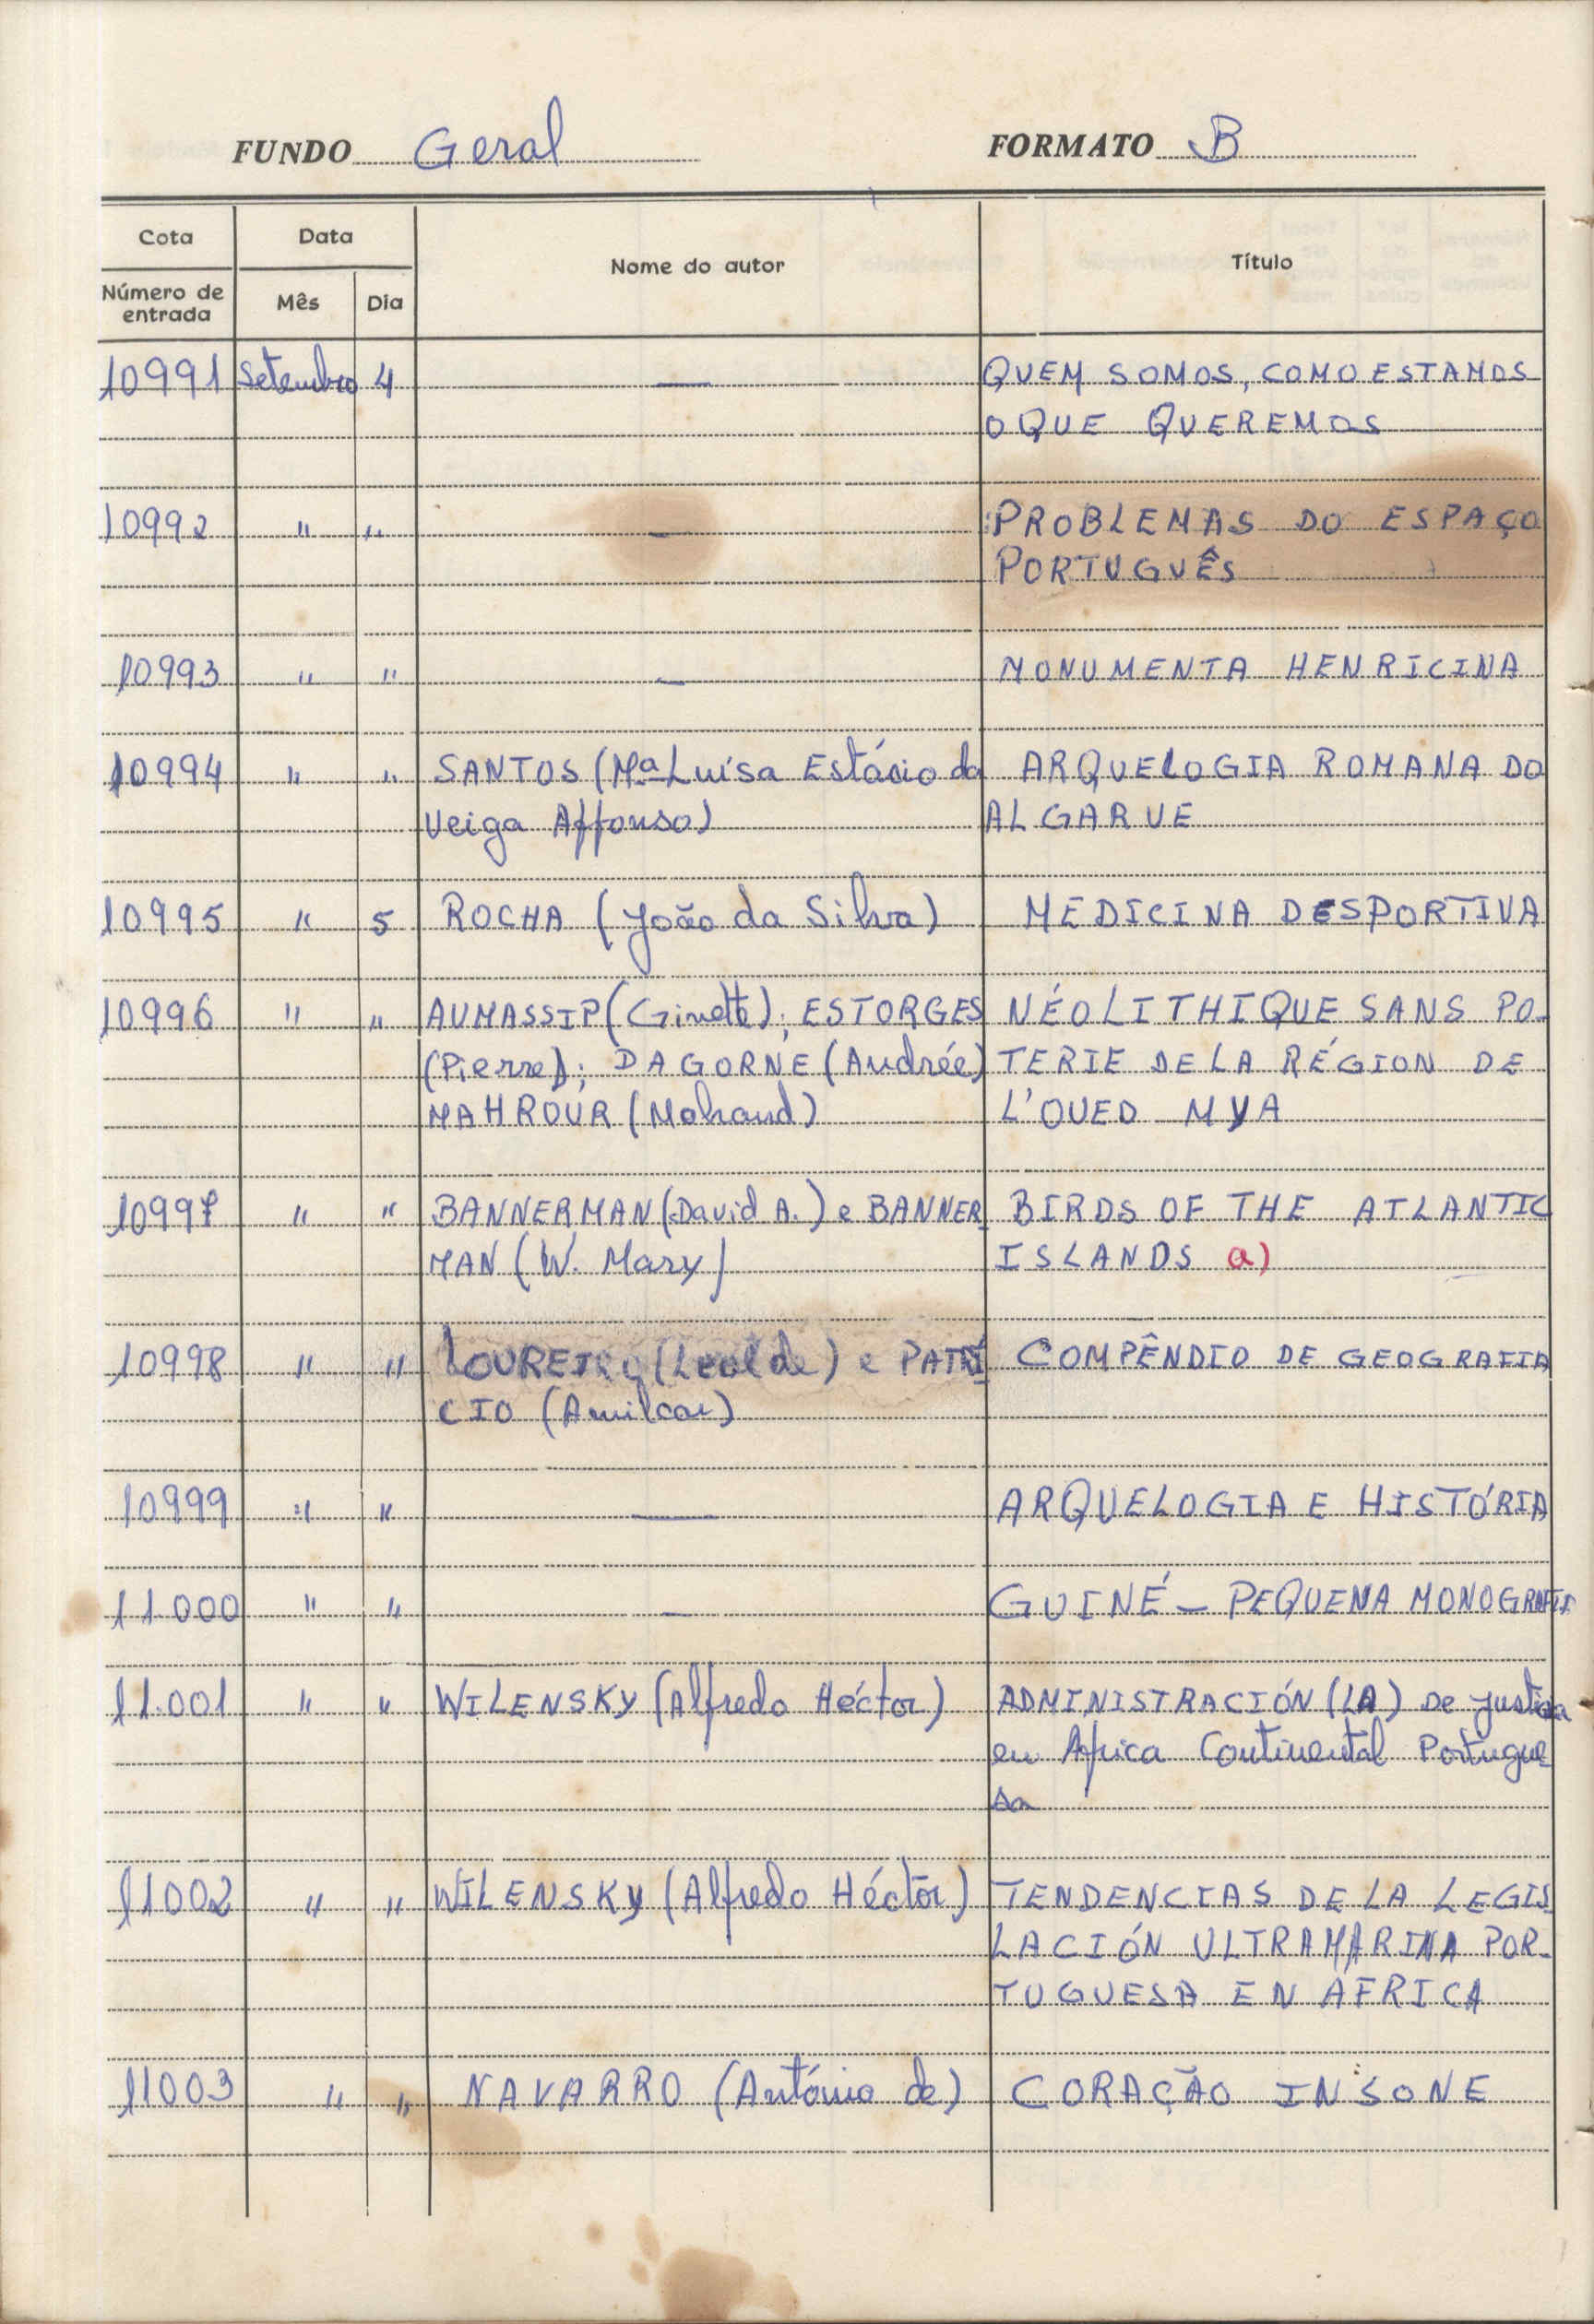 FUNDO Geral FORMATO B
Cota Data Nome do autor Título
Número de entrada Mês Dia
10991 Setembro 4 — QUEM SOMOS, COMO ESTAMOS
O QUE QUEREMOS
10992 " " — PROBLEMAS DO ESPAÇO
PORTUGUÊS
10993 " " — MONUMENTA HENRICINA
10994 " " SANTOS (Mª Luísa Estácio da ARQUELOGIA ROMANA DO
Veiga Affonso) ALGARVE
10995 " 5 ROCHA (João da Silva) MEDICINA DESPORTIVA
10996 " " AUMASSIP (Ginette); ESTORGES NÉOLITHIQUE SANS PO-
(Pierre); DAGORNE (Andrée) TERIE DE LA RÉGION DE
MAHROUR (Mohand) L'OUED MYA
10997 " " BANNERMAN (David A.) e BANNER BIRDS OF THE ATLANTIC
MAN (W. Mary) ISLANDS a)
10998 " " LOUREIRO (Leal de) e PATRÍ COMPÊNDIO DE GEOGRAFIA
CIO (Amilcar)
10999 " " — ARQUELOGIA E HISTÓRIA
11.000 " " — GUINÉ — PEQUENA MONOGRAFIA
11.001 " " WILENSKY (Alfredo Héctor) ADMINISTRACIÓN (LA) De Justicia
en Africa Continental Portugue
sa
11002 " " WILENSKY (Alfredo Héctor) TENDENCIAS DE LA LEGIS
LACIÓN ULTRAMARINA POR-
TUGUESA EN AFRICA
11003 " " NAVARRO (António de) CORAÇÃO INSONE